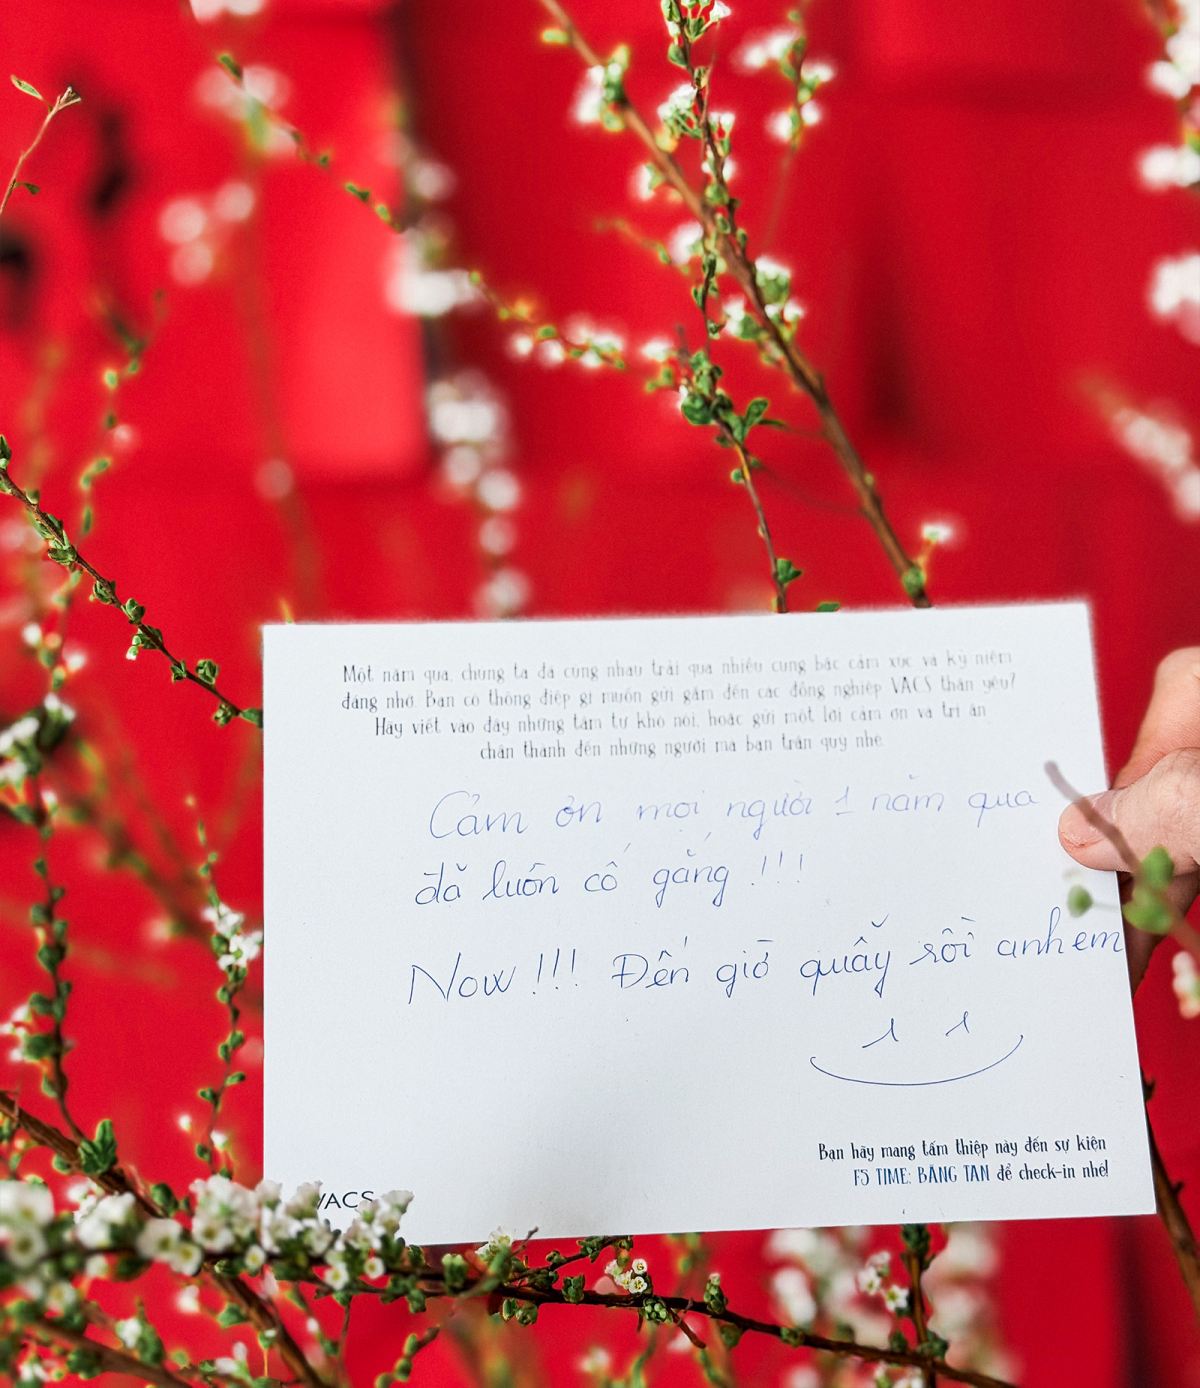 Một năm qua, chúng ta đã cùng nhau trải qua nhiều cung bậc cảm xúc và kỷ niệm
đáng nhớ. Bạn có thông điệp gì muốn gửi gắm đến các đồng nghiệp VACS thân yêu?
Hãy viết vào đây những tâm tư khó nói, hoặc gửi một lời cảm ơn và tri ân
chân thành đến những người mà bạn trân quý nhé
Cảm ơn mọi người 1 năm qua
đã luôn cố gắng !!!
Now !!! Đến giờ quẩy rồi anh em
Bạn hãy mang tấm thiệp này đến sự kiện
F5 TIME: BĂNG TAN để check-in nhé!
VACS